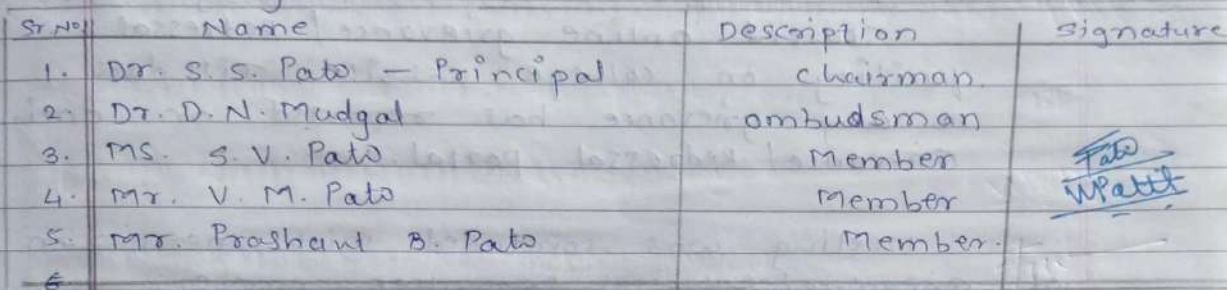 Sr No Name Description Signature
1. Dr. S. S. Pato - Principal Chairman.
2. Dr. D. N. Mudgal ombudsman
3. Ms. S. V. Pato Member Pato
4. Mr. V. M. Pato Member VPatil
5. Mr. Prashant B. Pato Member.
6